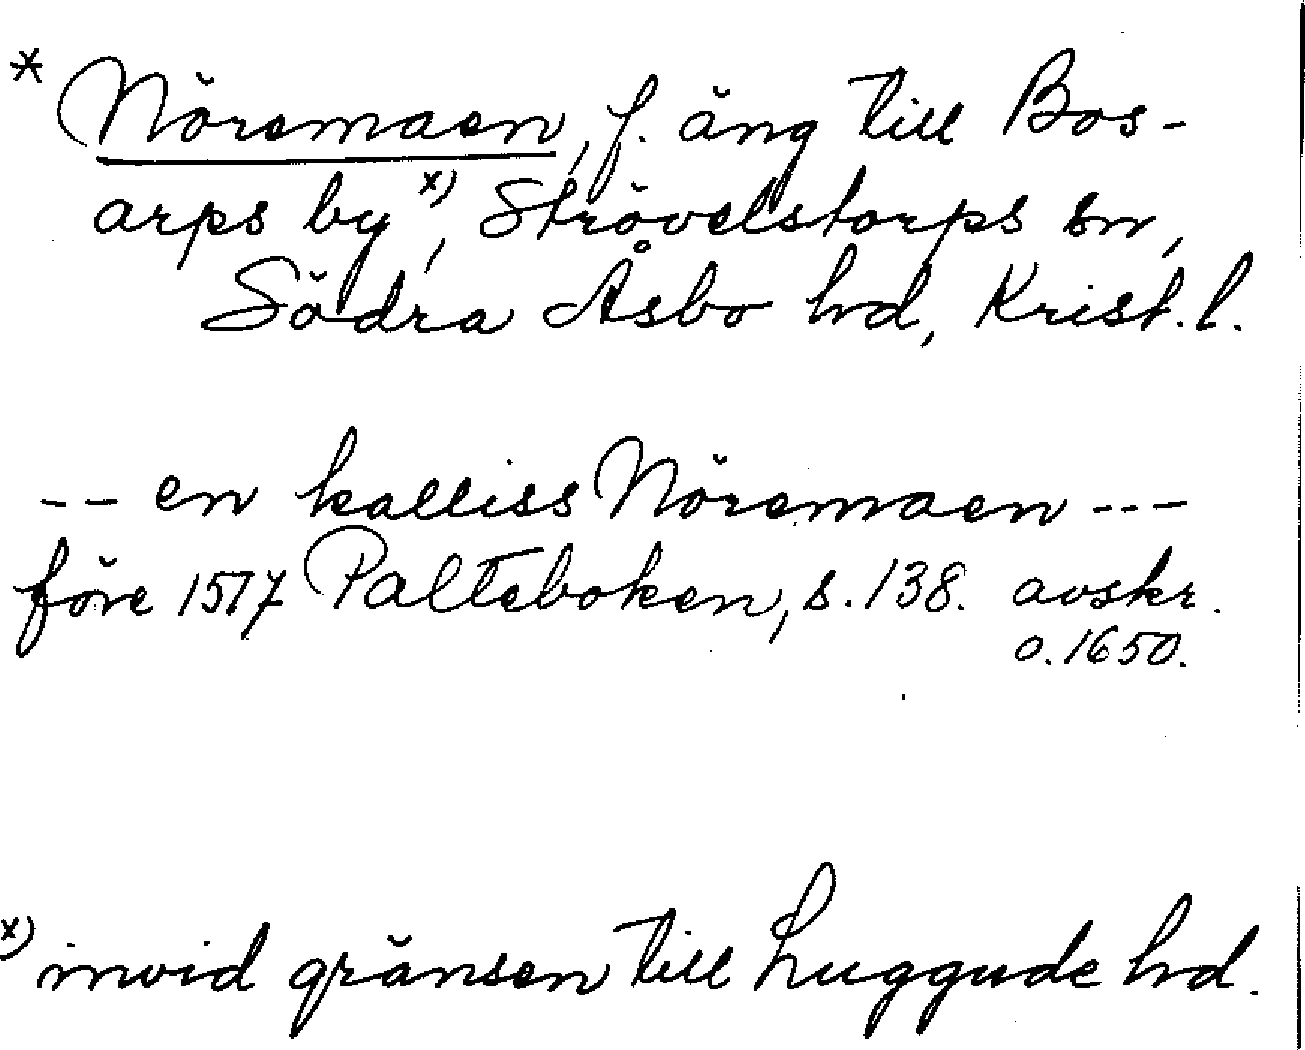 * Nöremaen, f. äng till Bos-
arps by x), Strövelstorps sn,
Södra Åsbo hd, Krist. l.
-- en kalliss Nöremaen ---
före 1517 Palteboken, s. 138. avskr.
o. 1650.
x) invid gränsen till Luggude hd.